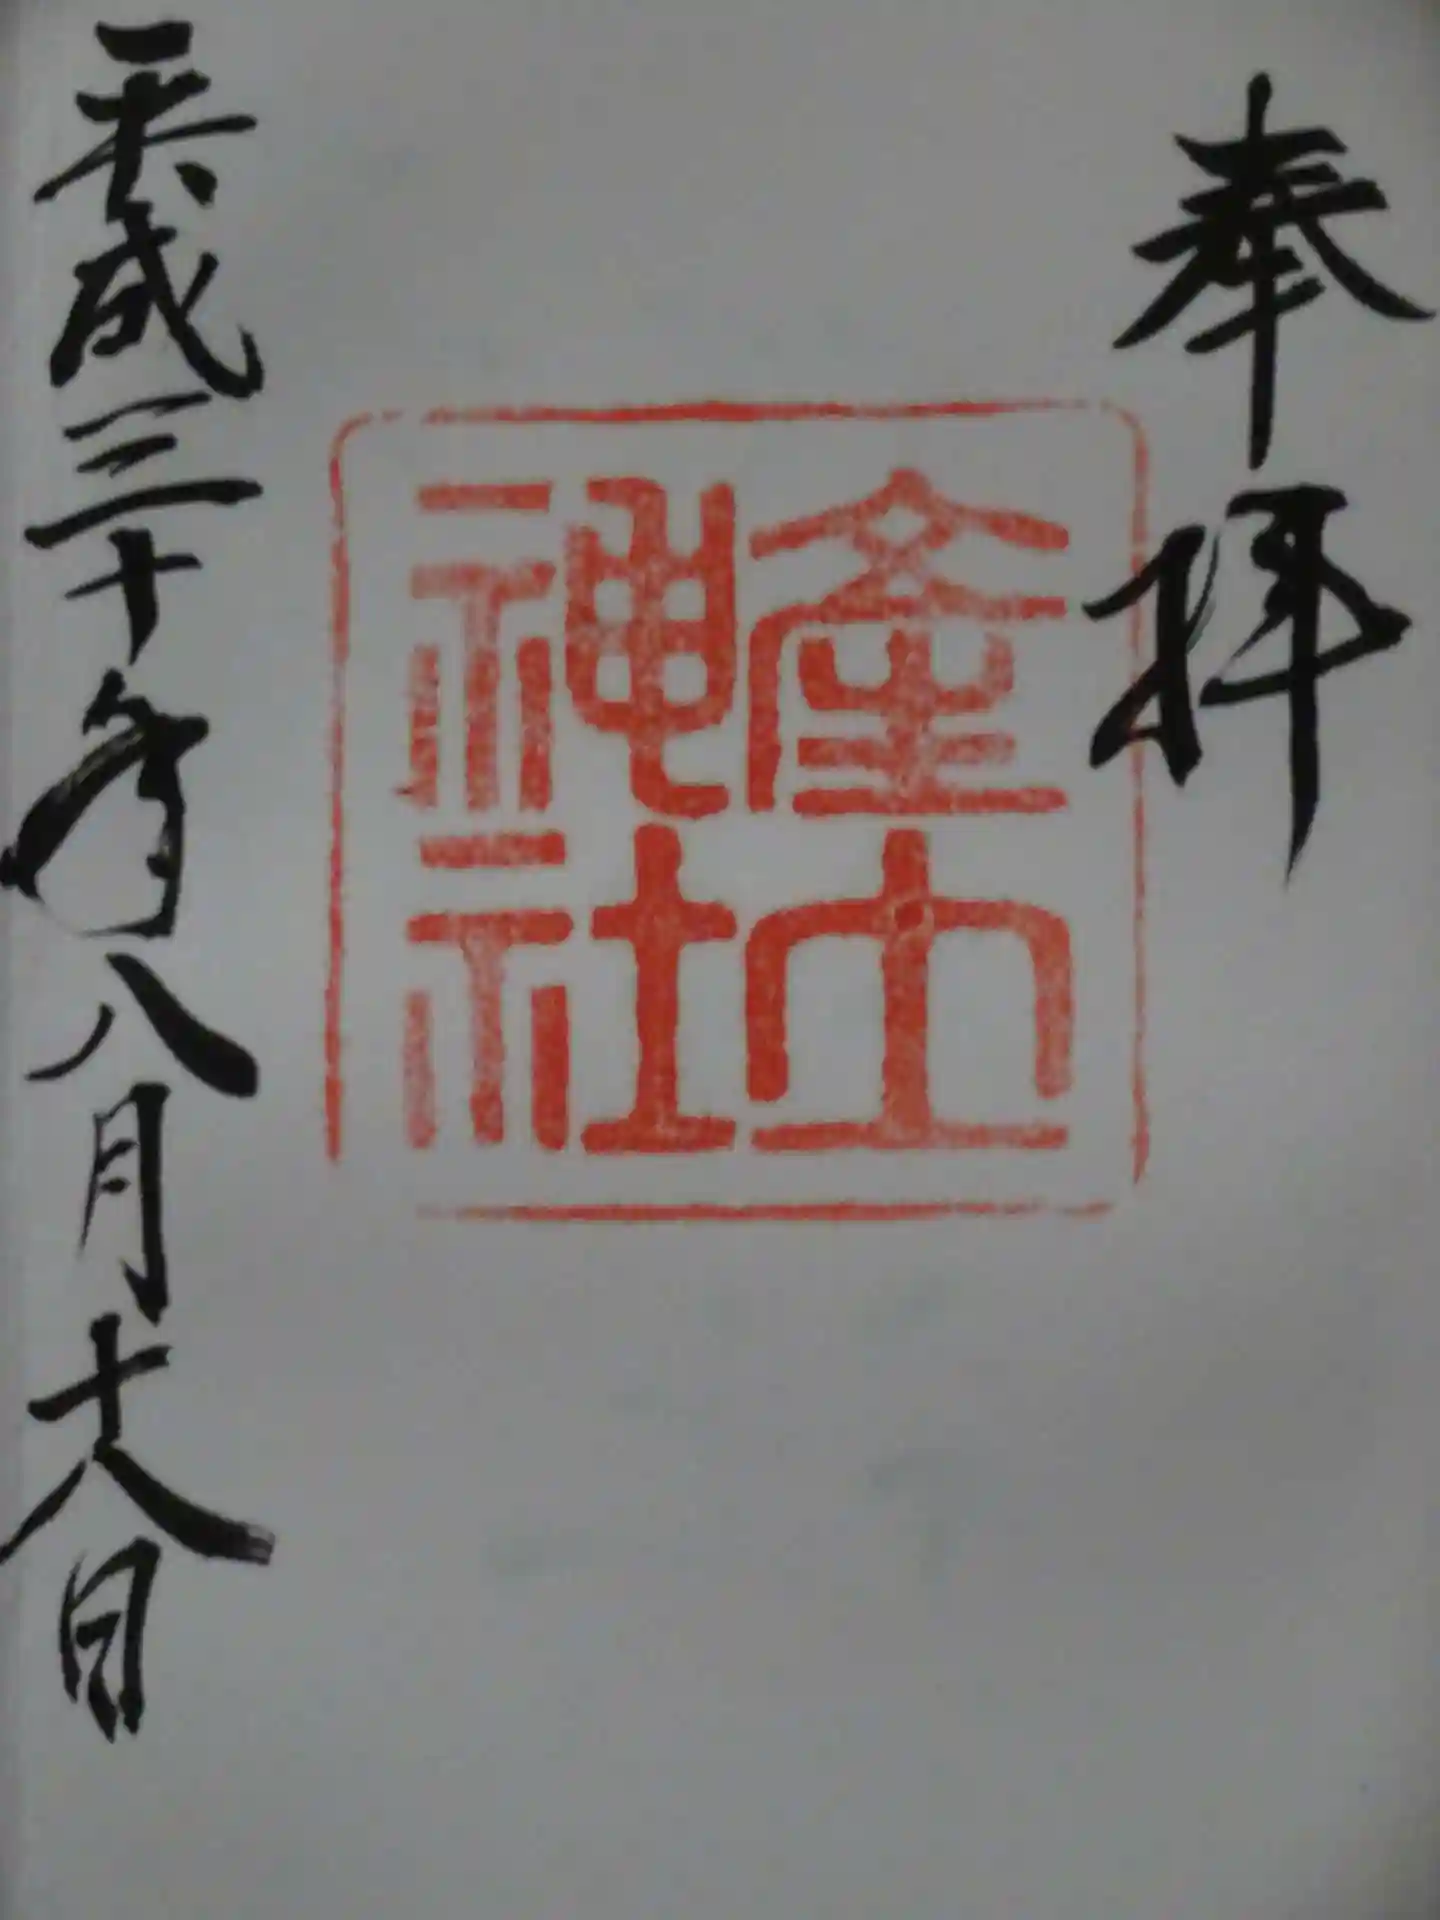 奉拝
産土
神社
平成三十年八月十八日